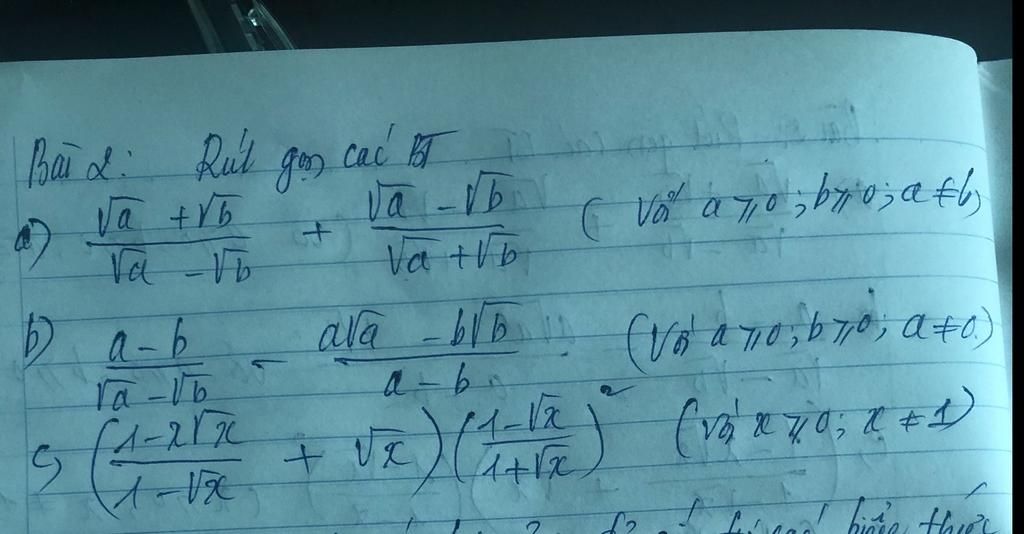 Bài 2: Rút gọn các BT
a) (√a + √b)/(√a - √b) + (√a - √b)/(√a + √b) ( với a ⩾ 0 ; b ⩾ 0 ; a ≠ b)
b) (a - b)/(√a - √b) - (a√a - b√b)/(a - b) (với a ⩾ 0 ; b ⩾ 0 ; a ≠ 0)
c) ((1 - x√x)/(1 - √x) + √x) ((1 - √x)/(1 + √x))² (với x ⩾ 0 ; x ≠ 1)
biểu thức